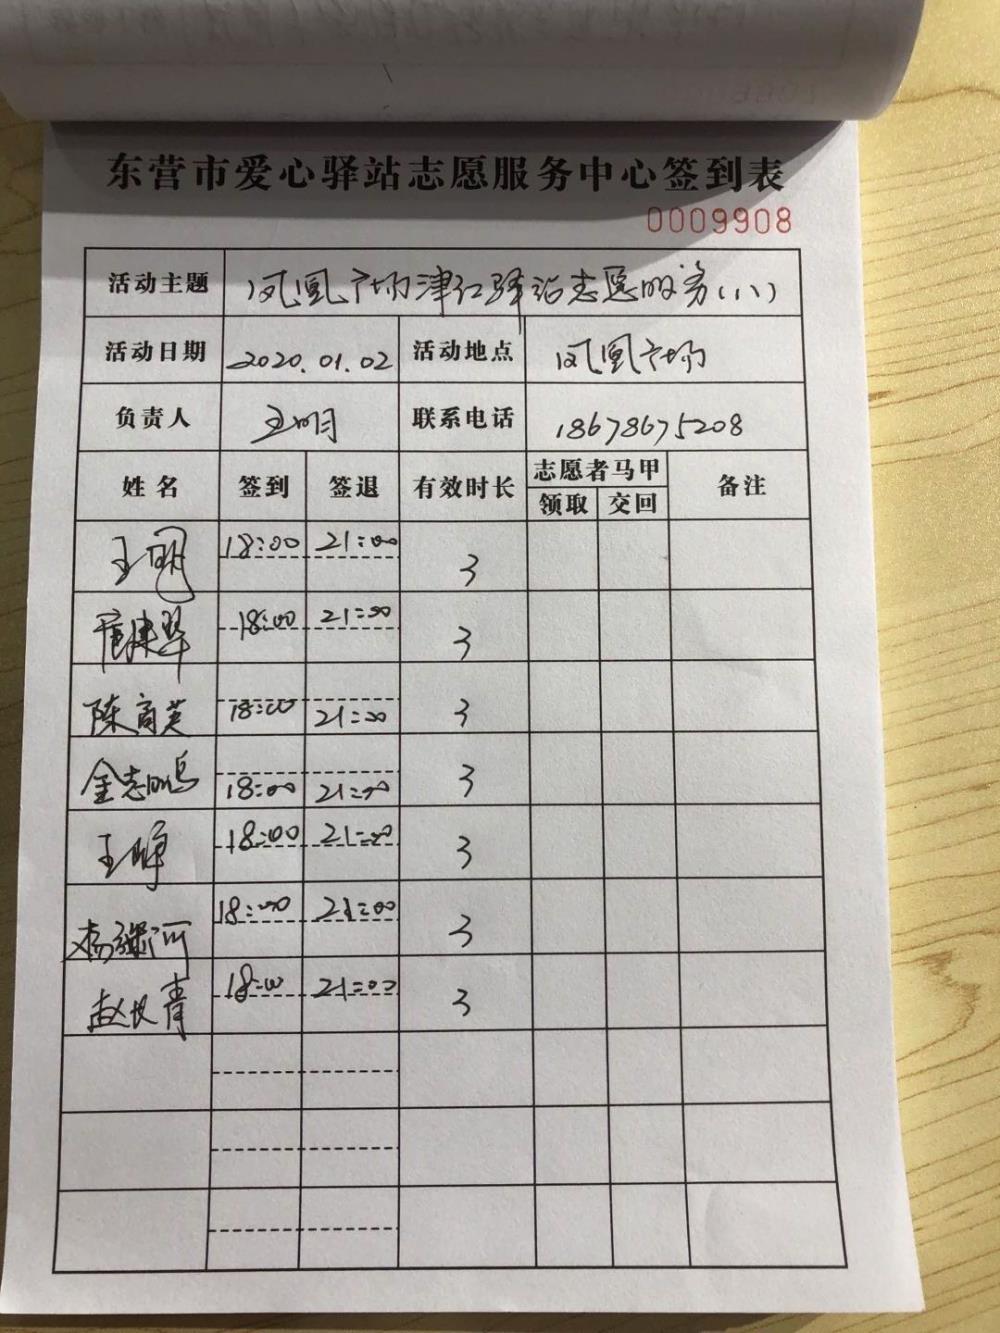 东营市爱心驿站志愿服务中心签到表
0009908
活动主题 凤凰广场津红驿站志愿服务(八)
活动日期 2020.01.02 活动地点 凤凰广场
负责人 王明 联系电话 18678675208
姓名 签到 签退 有效时长 志愿者马甲 备注
领取 交回
王明 18:00 21:00 3
18:00 21:00 3
陈 18:00 21:00 3
金志鹏 18:00 21:00 3
王 18:00 21:00 3
杨 河 18:00 21:00 3
赵长青 18:00 21:00 3